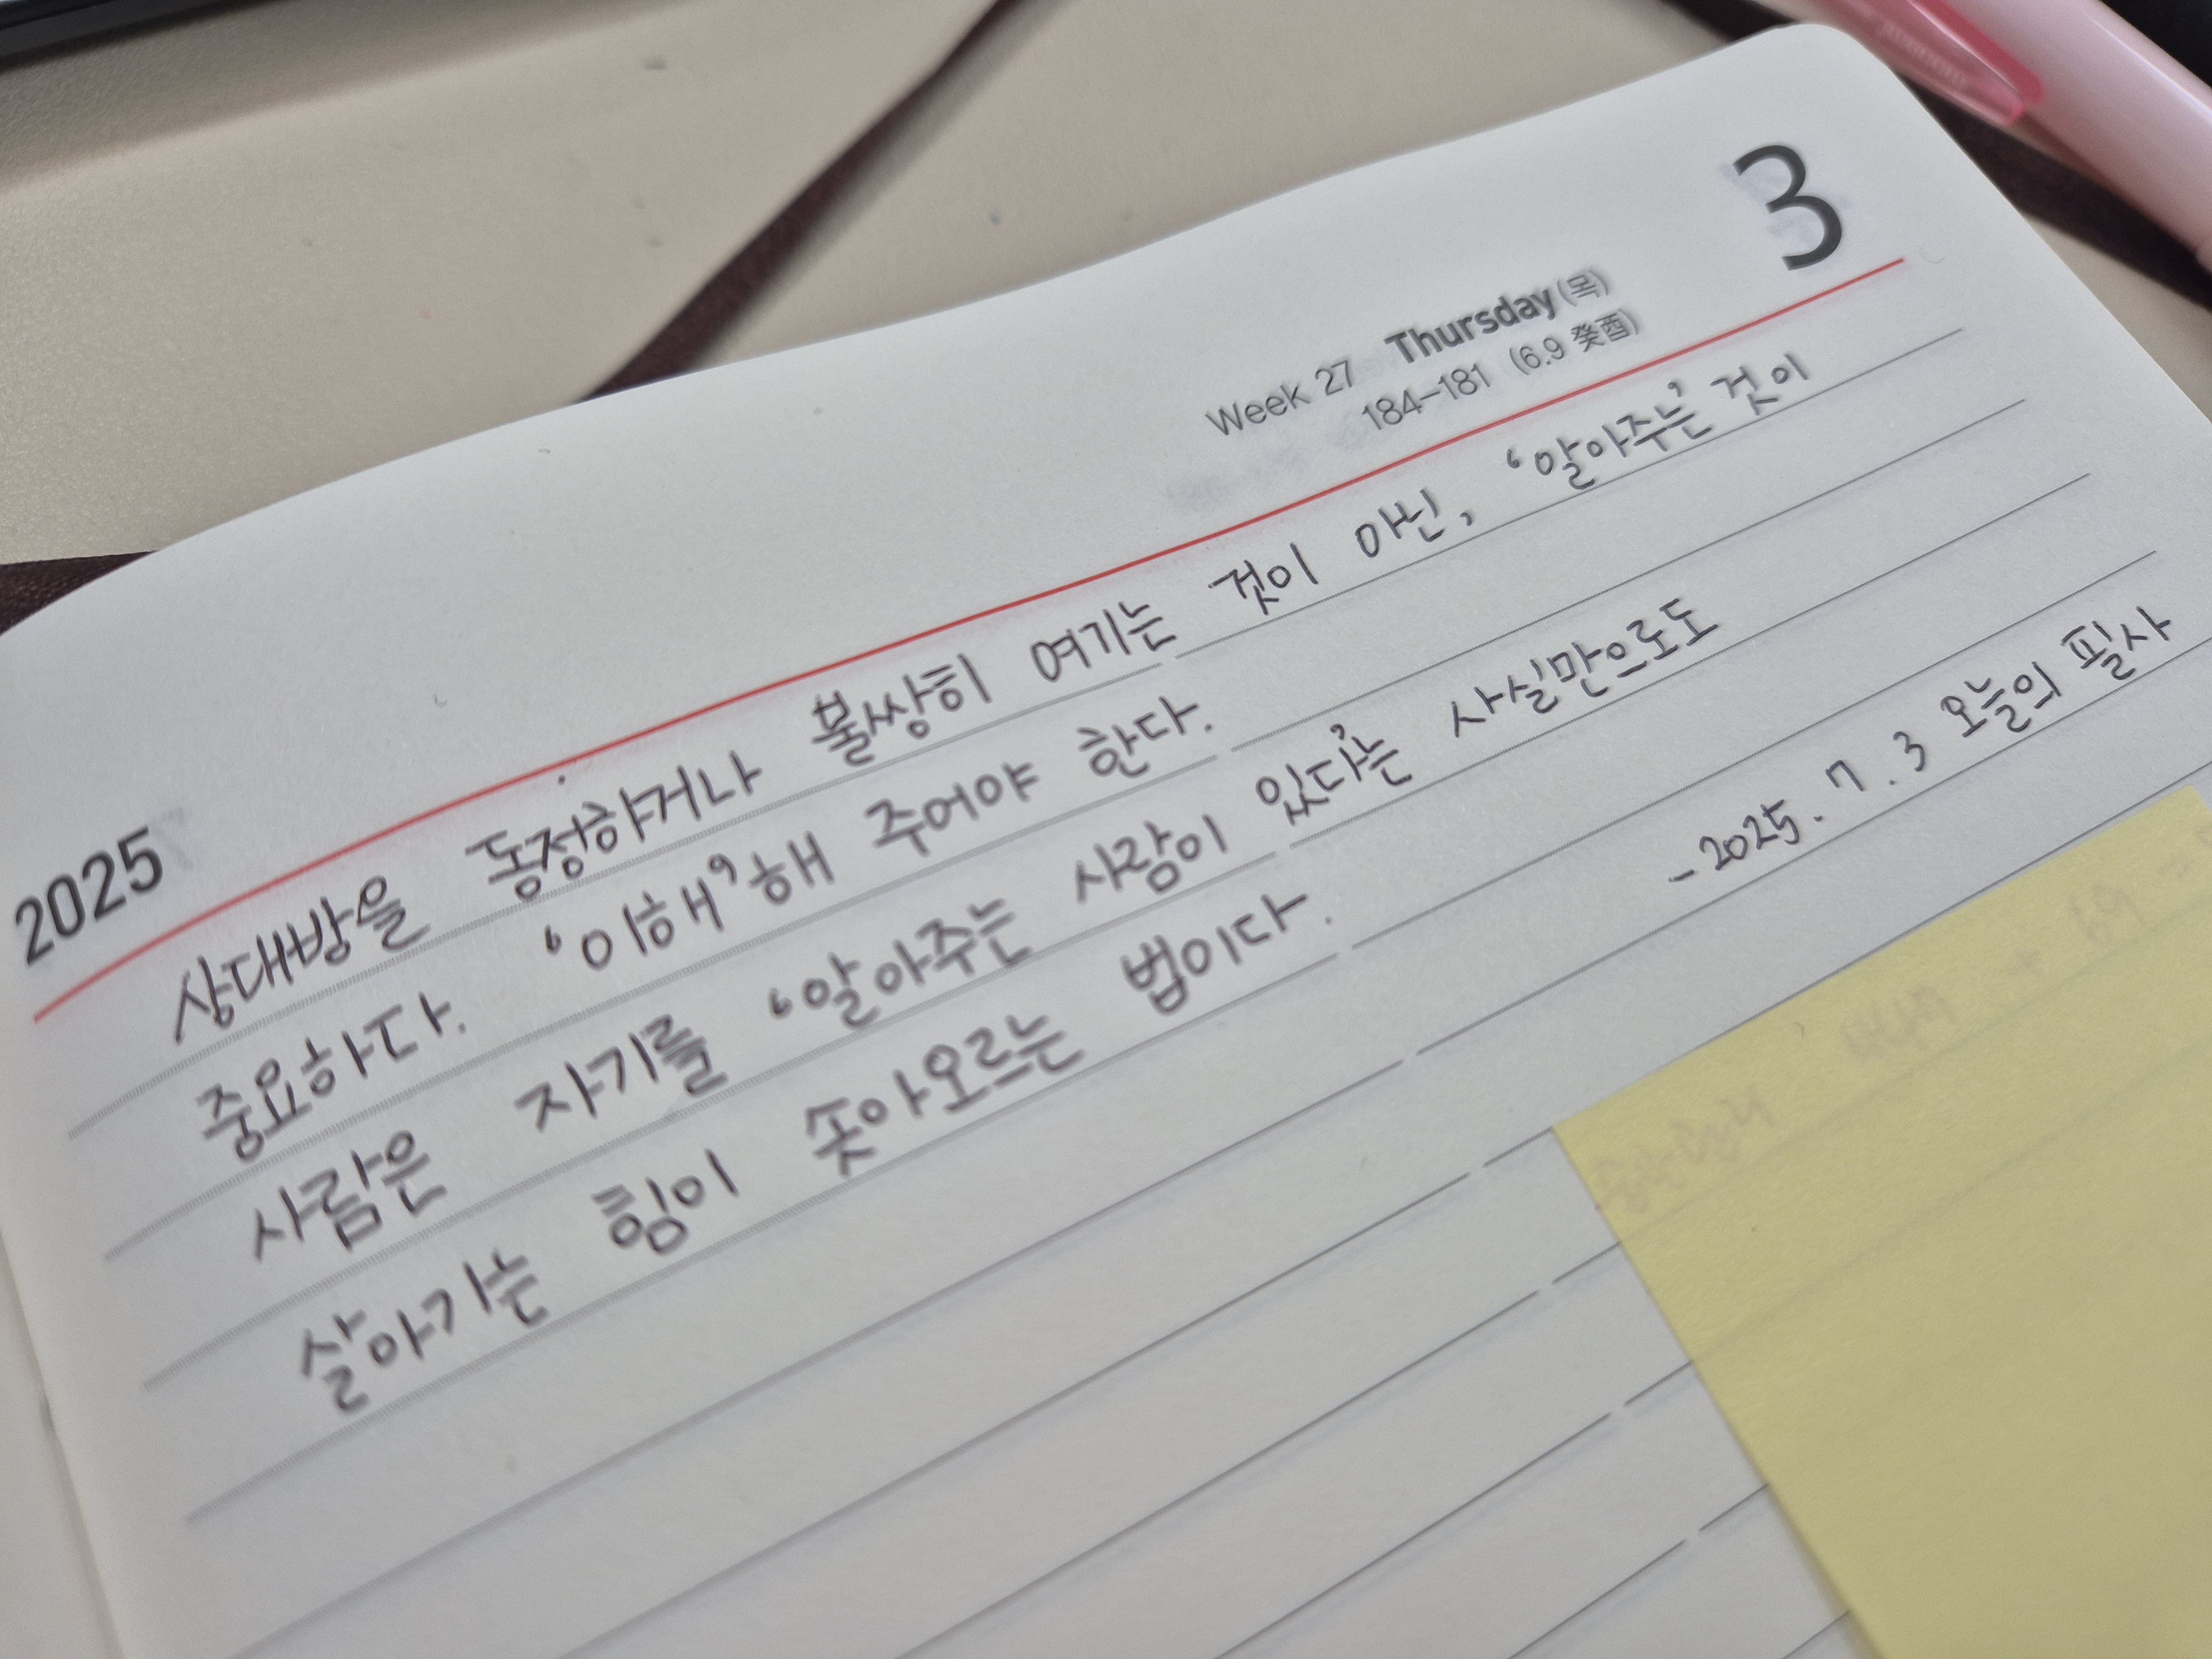 2025
Week 27 Thursday(목)
184–181 (6.9 癸酉)
3
상대방을 동정하거나 불쌍히 여기는 것이 아닌, ‘알아주는’ 것이
중요하다. ‘이해’해 주어야 한다.
사람은 자기를 ‘알아주는 사람이 있다’는 사실만으로도
살아가는 힘이 솟아오르는 법이다.
-2025. 7. 3 오늘의 필사